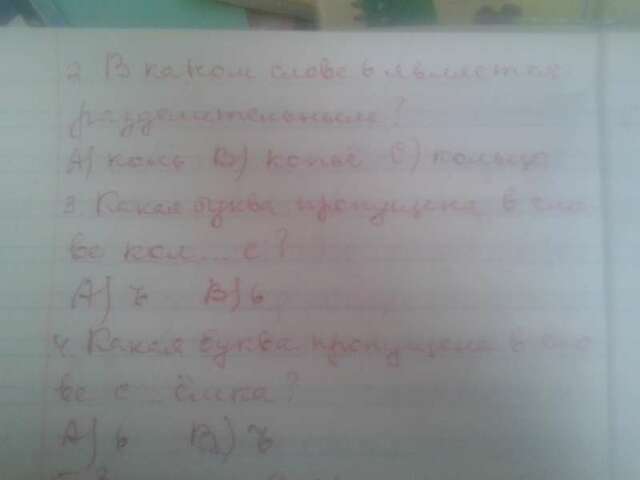 2. В каком слове ь является
разделительным?
А) конь В) копьё С) кольцо
3. Какая буква пропущена в сло-
ве кол...с?
А) ъ В) ь
4. Какая буква пропущена в сло
ве с...ёмка?
А) ь В) ъ